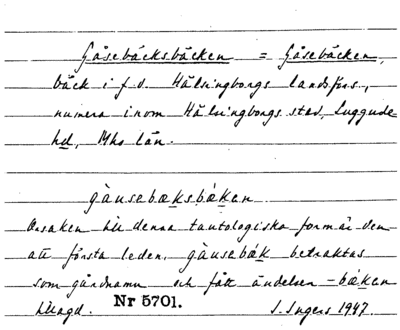 Gåsebäcksbäcken = Gåsebäcken,
bäck i f.d. Hälsingborgs landsförs.,
numera inom Hälsingborgs stad, Luggude
hd, Mhs län.
gàusebæksbǽken
Orsaken till denna tautologiska form är den
att första leden, gàusebǽk betraktas
som gårdnamn och fått ändelsen -bǽken
tillagd. Nr 5701. I. Ingers 1947.